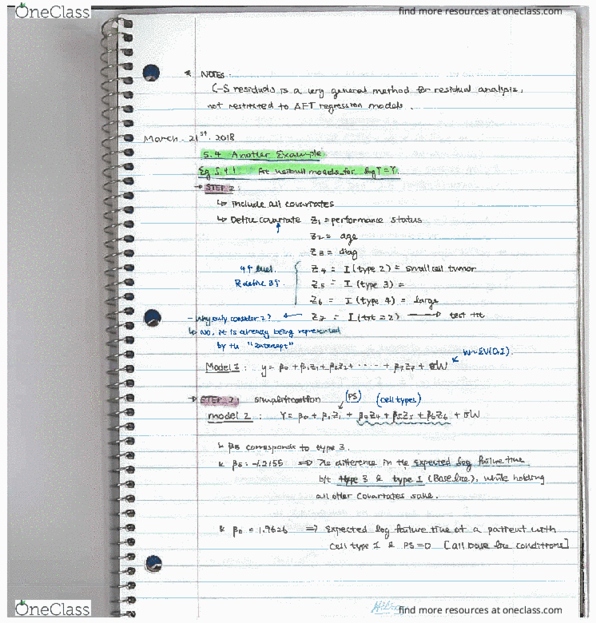 OneClass
find more resources at oneclass.com
* NOTES.
C-S residuals is a very general method for residual analysis,
not restricted to AFT regression models.
March. 21st. 2018
5.4 Another Example
Eg 5.4.1: At Weibull models for log T = Y.
→ STEP 1:
↳ include all covariates
↳ Define covariate Z1 = performance status
Z2 = age
Z3 = diag
Z4 = I(type 2) = small cell tumor
Z5 = I(type 3) =
Z6 = I(type 4) = large
- Why only consider 2? ← Z7 = I(trt = 2) → test trt
↳ No, it is already being represented
by the "Intercept"
Model 1: y = β0 + β1Z1 + β2Z2 + ... + β7Z7 + σW
W~EV(0,1).
→ STEP 2: simplification (PS) (cell types)
model 2: Y = β0 + β1Z1 + β4Z4 + β5Z5 + β6Z6 + σW
↳ β5 corresponds to type 3.
* β5 = -1.2155 ⇒ The difference in the expected log failure time
b/t type 3 & type 1 (Baseline), while holding
all other covariates same.
* β0 = 1.9626 ⇒ Expected log failure time of a patient with
cell type 1 & PS=0 [all base line conditions]
OneClass
find more resources at oneclass.com